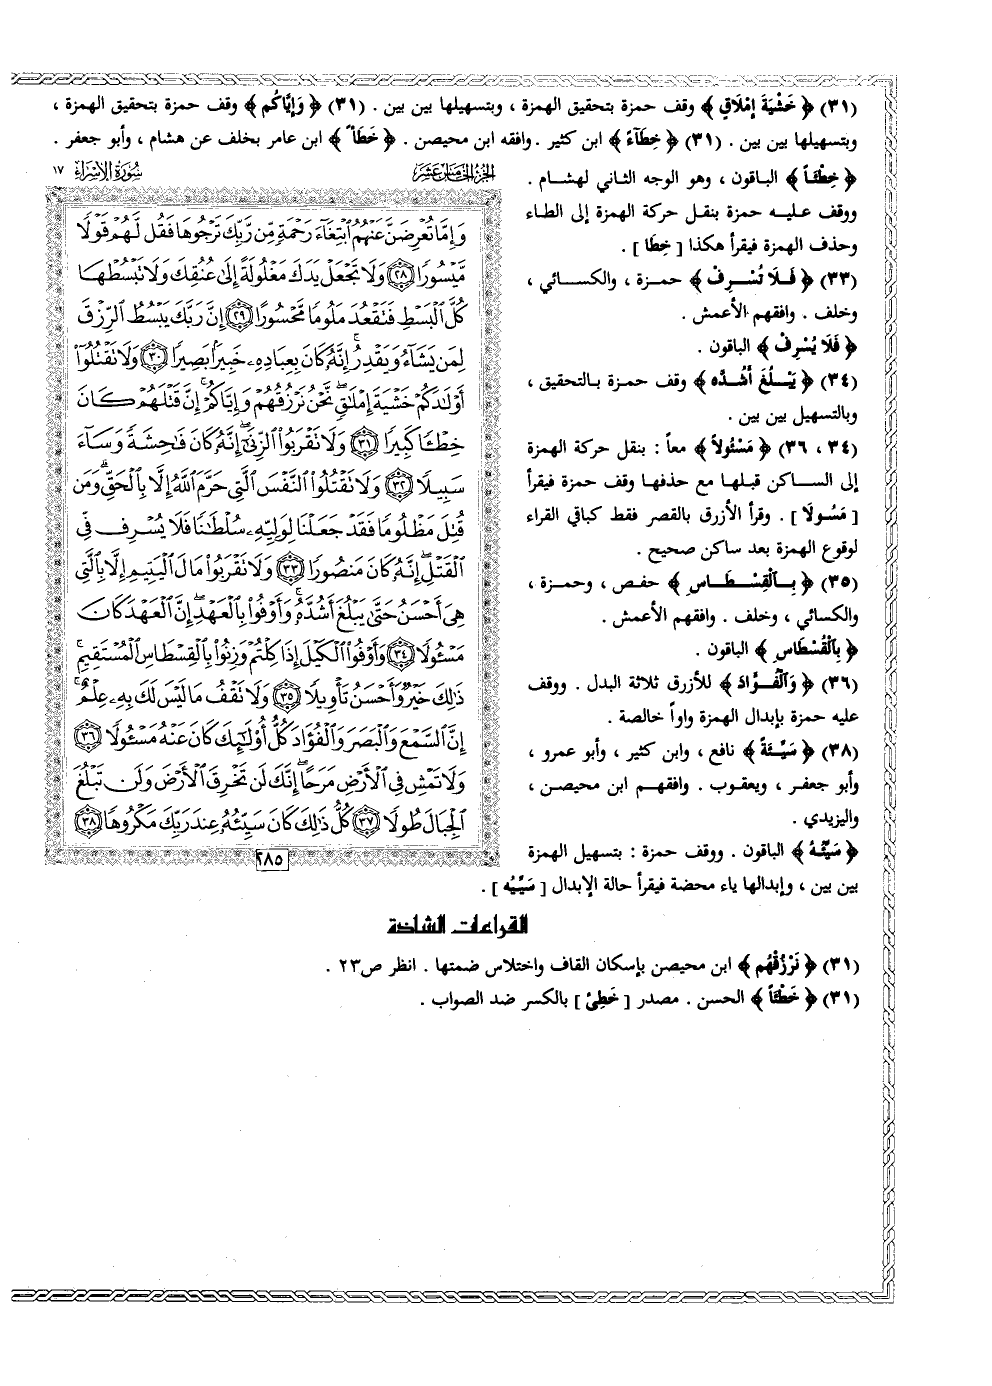 (٣١) ﴿ خَشْيَةَ إِمْلَاقٍ ﴾ وقف حمزة بتحقيق الهمزة ، وبتسهيلها بين بين . (٣١) ﴿ وَإِيَّاكُم ﴾ وقف حمزة بتحقيق الهمزة ،
وبتسهيلها بين بين . (٣١) ﴿ خِطَآءً ﴾ ابن كثير . وافقه ابن محيصن . ﴿ خَطَأً ﴾ ابن عامر بخلف عن هشام ، وأبو جعفر .
﴿ خِطْئاً ﴾ الباقون ، وهو الوجه الثاني لهشام .
ووقف عليه حمزة بنقل حركة الهمزة إلى الطاء
وحذف الهمزة فيقرأ هكذا [ خِطَا ] .
(٣٣) ﴿ فَلَا تُسْرِفْ ﴾ حمزة ، والكسائي ،
وخلف . وافقهم الأعمش .
﴿ فَلَا يُسْرِفْ ﴾ الباقون .
(٣٤) ﴿ يَبْلُغَ أَشُدَّه ﴾ وقف حمزة بالتحقيق ،
وبالتسهيل بين بين .
(٣٤ ، ٣٦) ﴿ مَسْئُولاً ﴾ معاً : بنقل حركة الهمزة
إلى الساكن قبلها مع حذفها وقف حمزة فيقرأ
[ مَسُولَا ] . وقرأ الأزرق بالقصر فقط كباقي القراء
لوقوع الهمزة بعد ساكن صحيح .
(٣٥) ﴿ بِالْقِسْطَاسِ ﴾ حفص ، وحمزة ،
والكسائي ، وخلف . وافقهم الأعمش .
﴿ بِالْقُسْطَاسِ ﴾ الباقون .
(٣٦) ﴿ وَالْفُؤَادَ ﴾ للأزرق ثلاثة البدل . ووقف
عليه حمزة بإبدال الهمزة واواً خالصة .
(٣٨) ﴿ سَيِّئَةً ﴾ نافع ، وابن كثير ، وأبو عمرو ،
وأبو جعفر ، ويعقوب . وافقهم ابن محيصن ،
واليزيدي .
﴿ سَيِّئُهُ ﴾ الباقون . ووقف حمزة : بتسهيل الهمزة
بين بين ، وإبدالها ياء محضة فيقرأ حالة الإبدال [ سَيِّيُه ] .
الجزء الخامس عشر
سورة الإسراء ١٧
وَإِمَّا تُعْرِضَنَّ عَنْهُمُ ابْتِغَاءَ رَحْمَةٍ مِّن رَّبِّكَ تَرْجُوهَا فَقُل لَّهُمْ قَوْلًا
مَّيْسُورًا ٢٨ وَلَا تَجْعَلْ يَدَكَ مَغْلُولَةً إِلَىٰ عُنُقِكَ وَلَا تَبْسُطْهَا
كُلَّ الْبَسْطِ فَتَقْعُدَ مَلُومًا مَّحْسُورًا ٢٩ إِنَّ رَبَّكَ يَبْسُطُ الرِّزْقَ
لِمَن يَشَاءُ وَيَقْدِرُ ۚ إِنَّهُ كَانَ بِعِبَادِهِ خَبِيرًا بَصِيرًا ٣٠ وَلَا تَقْتُلُوا
أَوْلَادَكُمْ خَشْيَةَ إِمْلَاقٍ ۖ نَّحْنُ نَرْزُقُهُمْ وَإِيَّاكُمْ ۚ إِنَّ قَتْلَهُمْ كَانَ
خِطْئًا كَبِيرًا ٣١ وَلَا تَقْرَبُوا الزِّنَىٰ ۖ إِنَّهُ كَانَ فَاحِشَةً وَسَاءَ
سَبِيلًا ٣٢ وَلَا تَقْتُلُوا النَّفْسَ الَّتِي حَرَّمَ اللَّهُ إِلَّا بِالْحَقِّ ۗ وَمَن
قُتِلَ مَظْلُومًا فَقَدْ جَعَلْنَا لِوَلِيِّهِ سُلْطَانًا فَلَا يُسْرِف فِّي
الْقَتْلِ ۖ إِنَّهُ كَانَ مَنصُورًا ٣٣ وَلَا تَقْرَبُوا مَالَ الْيَتِيمِ إِلَّا بِالَّتِي
هِيَ أَحْسَنُ حَتَّىٰ يَبْلُغَ أَشُدَّهُ ۚ وَأَوْفُوا بِالْعَهْدِ ۖ إِنَّ الْعَهْدَ كَانَ
مَسْئُولًا ٣٤ وَأَوْفُوا الْكَيْلَ إِذَا كِلْتُمْ وَزِنُوا بِالْقِسْطَاسِ الْمُسْتَقِيمِ ۚ
ذَٰلِكَ خَيْرٌ وَأَحْسَنُ تَأْوِيلًا ٣٥ وَلَا تَقْفُ مَا لَيْسَ لَكَ بِهِ عِلْمٌ ۚ
إِنَّ السَّمْعَ وَالْبَصَرَ وَالْفُؤَادَ كُلُّ أُولَٰئِكَ كَانَ عَنْهُ مَسْئُولًا ٣٦
وَلَا تَمْشِ فِي الْأَرْضِ مَرَحًا ۖ إِنَّكَ لَن تَخْرِقَ الْأَرْضَ وَلَن تَبْلُغَ
الْجِبَالَ طُولًا ٣٧ كُلُّ ذَٰلِكَ كَانَ سَيِّئُهُ عِندَ رَبِّكَ مَكْرُوهًا ٣٨
٢٨٥
القراءات الشاذة
(٣١) ﴿ نَرْزُقْهُم ﴾ ابن محيصن بإسكان القاف واختلاس ضمتها . انظر ص٢٣ .
(٣١) ﴿ خَطْئاً ﴾ الحسن . مصدر [ خَطِئَ ] بالكسر ضد الصواب .